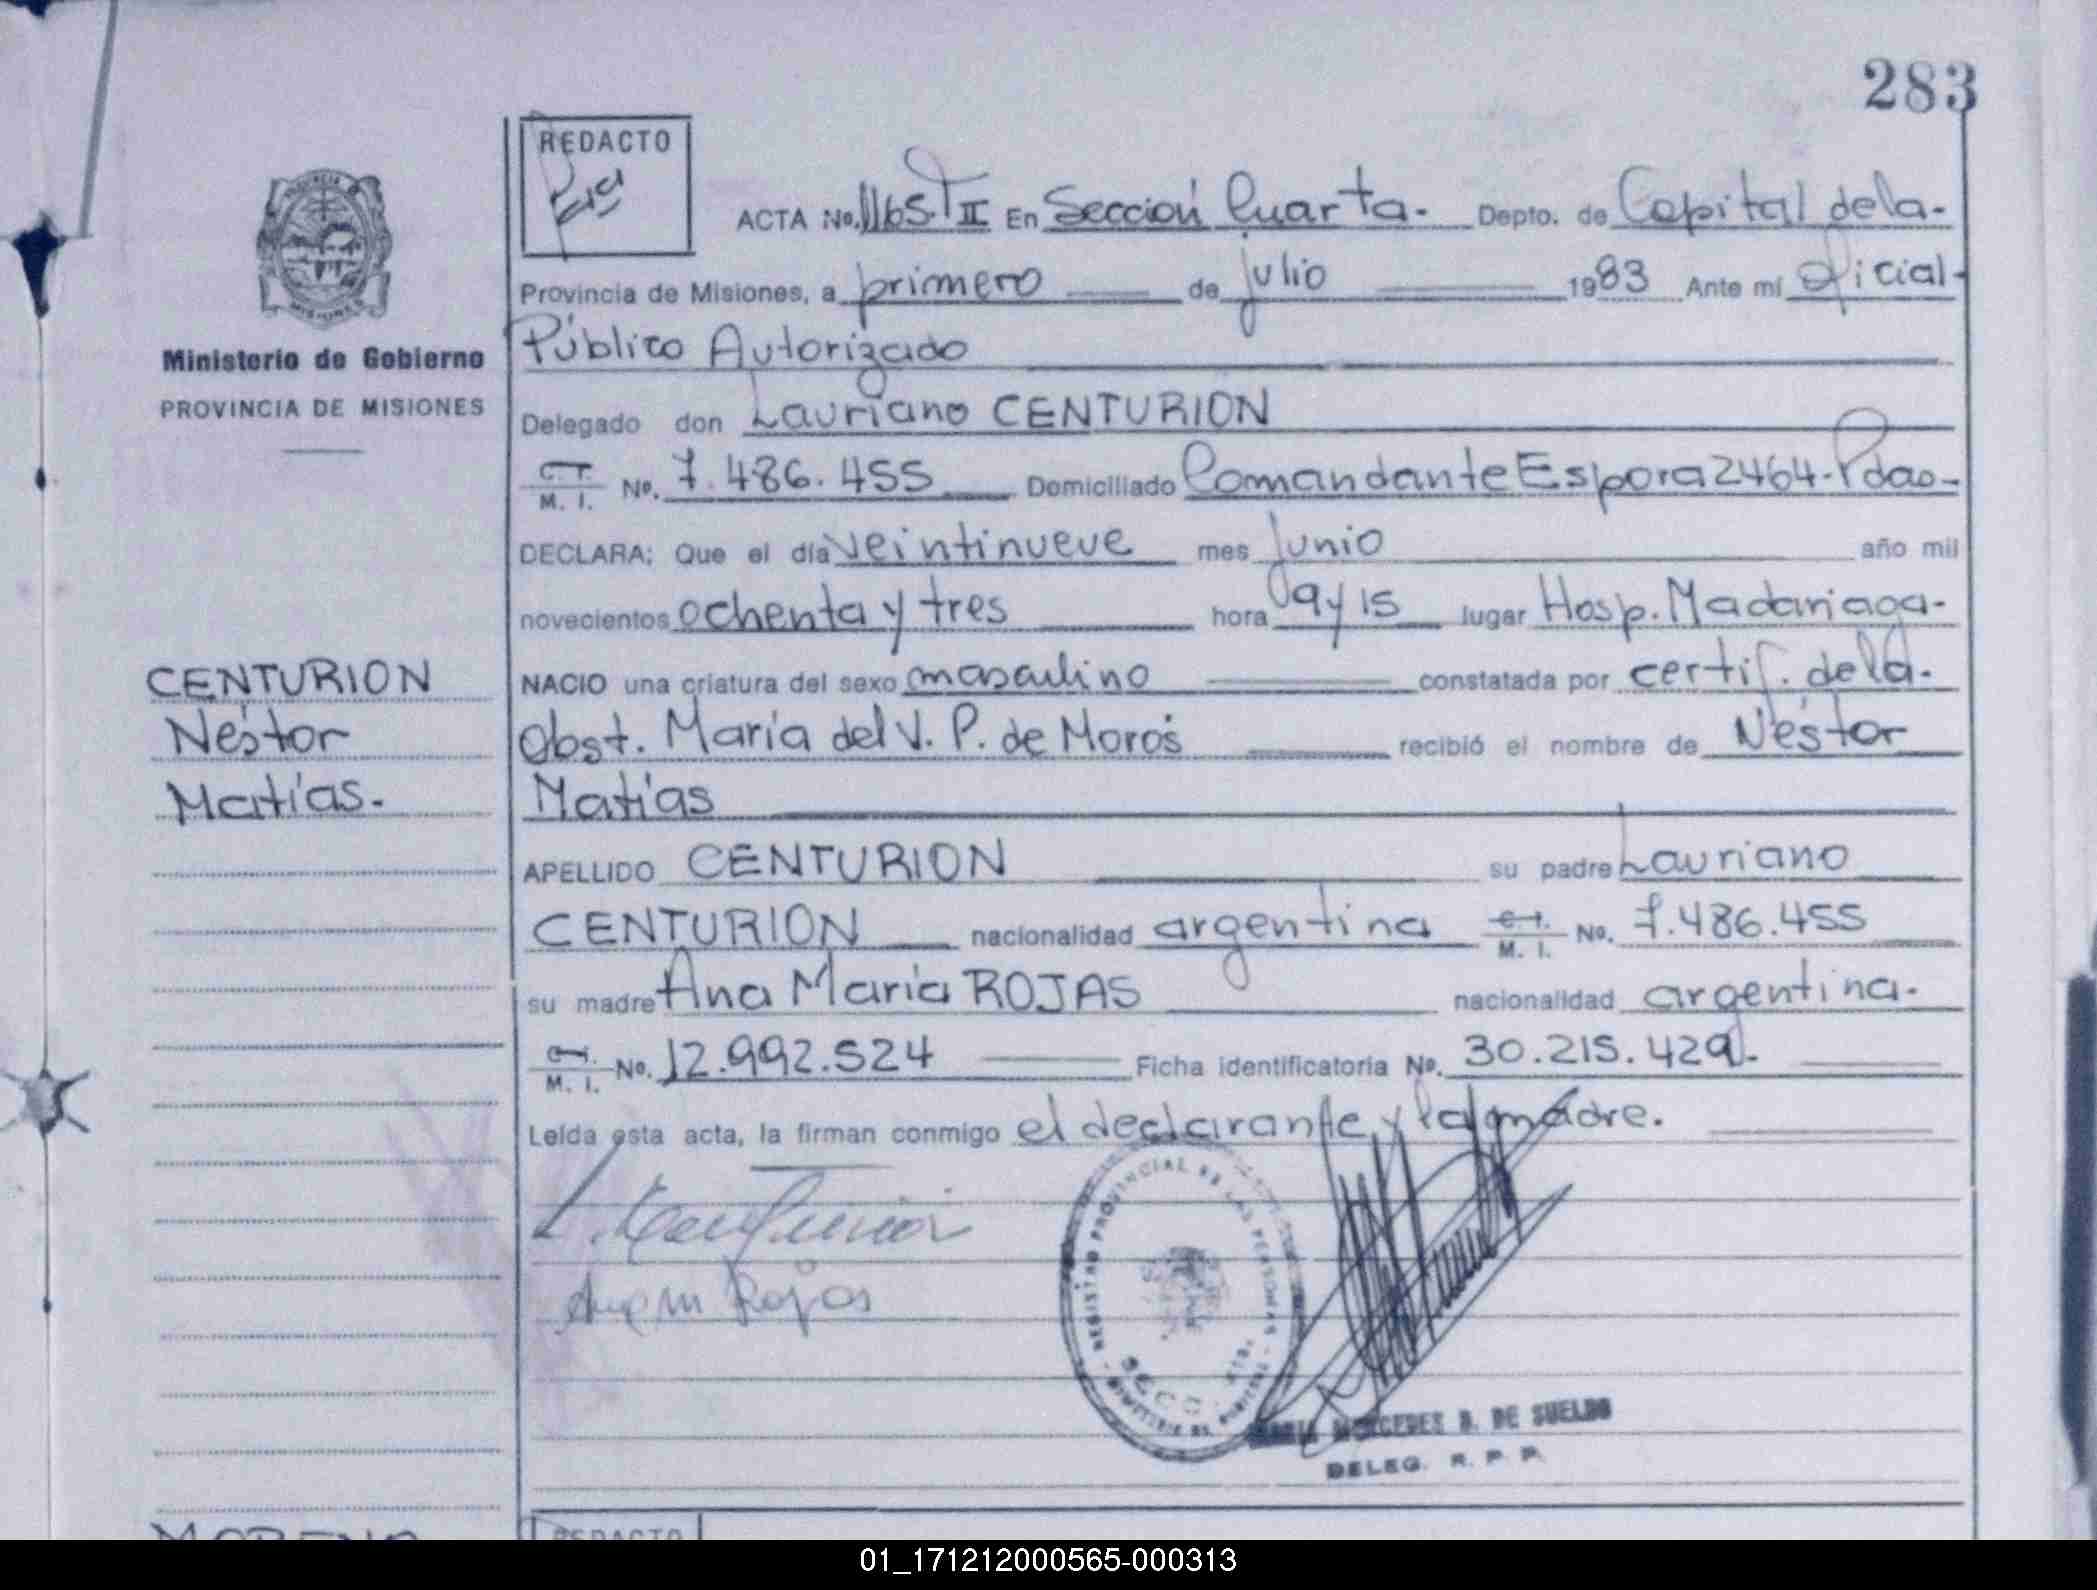 283
REDACTO
ACTA No. 1165. T II En Sección Cuarta. Depto. de Capital de la.
Provincia de Misiones, a primero de julio 1983 Ante mí Oficial
Público Autorizado
Delegado don Lauriano CENTURION
C.I. M. I. No. 7.486.455 Domiciliado Comandante Espora 2464. Pdas
DECLARA: Que el día veintinueve mes junio año mil
novecientos ochenta y tres hora 9 y 15 lugar Hosp. Madariaga.
NACIO una criatura del sexo masculino constatada por certif. de la.
Obst. María del V. P. de Morós recibió el nombre de Néstor
Matías
APELLIDO CENTURION su padre Lauriano
CENTURION nacionalidad argentina C.I. M. I. No. 7.486.455
su madre Ana María ROJAS nacionalidad argentina.
C.I. M. I. No. 12.992.524 Ficha identificatoria No. 30.215.429.
Leída esta acta, la firman conmigo el declarante y la madre.
L. Centurion
Ana M Rojas
REGISTRO PROVINCIAL DE LAS PERSONAS
MERCEDES B. DE SUELDO
DELEG. R. P. P.
PROVINCIA D
MISIONES
Ministerio de Gobierno
PROVINCIA DE MISIONES
CENTURION
Néstor
Matías.
MORENO
REDACTO
01_171212000565-000313